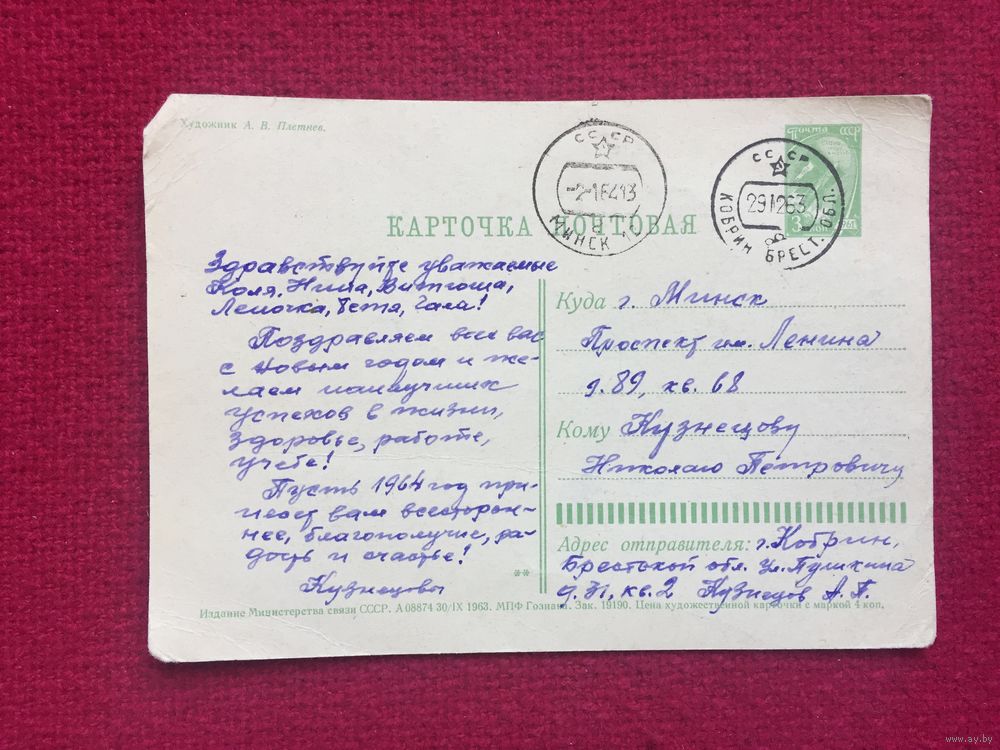 Художник А. В. Плетнев.
Почта СССР
СССР
-2-1 64 13
МИНСК
СССР
29 12 63
КОБРИН БРЕСТ. ОБЛ.
КАРТОЧКА ПОЧТОВАЯ
Здравствуйте уважаемые
Коля, Нина, Витюша,
Леночка, тетя, Галя!
Поздравляем всех вас
с новым годом и же-
лаем наилучших
успехов в жизни,
здоровье, работе,
учебе!
Пусть 1964 год при-
несет вам всесторон-
нее, благополучие, ра-
дость и счастье!
Кузнецовы
Куда г. Минск
Проспект им. Ленина
д. 89, кв. 68
Кому Кузнецову
Николаю Петровичу
Адрес отправителя: г. Кобрин,
Брестской обл. ул. Пушкина
д. 31, кв. 2 Кузнецов А. П.
**
Издание Министерства связи СССР. А 08874 30/IX 1963. МПФ Гознака. Зак. 19190. Цена художественной карточки с маркой 4 коп.
www.ay.by